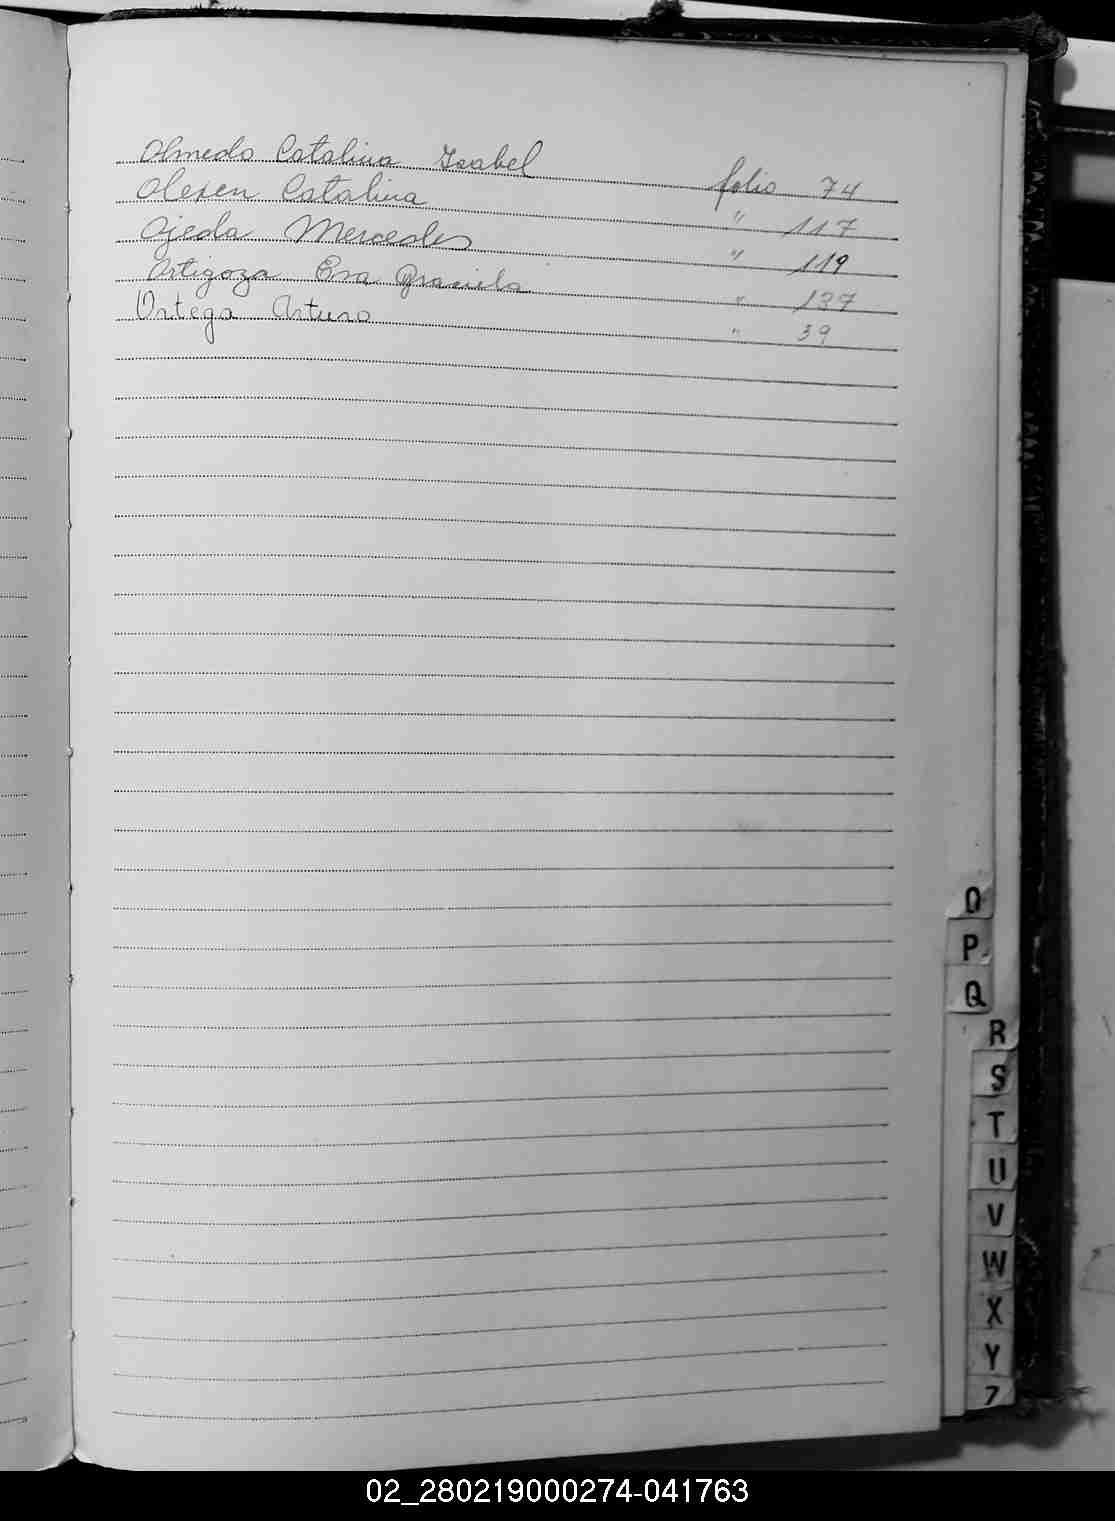 Olmedo Catalina Isabel folio 74
Olexen Catalina " 117
Ojeda Mercedes " 119
Ortigoza Eva Graciela " 137
Ortega Arturo " 39
O
P
Q
R
S
T
U
V
W
X
Y
Z
02_280219000274-041763